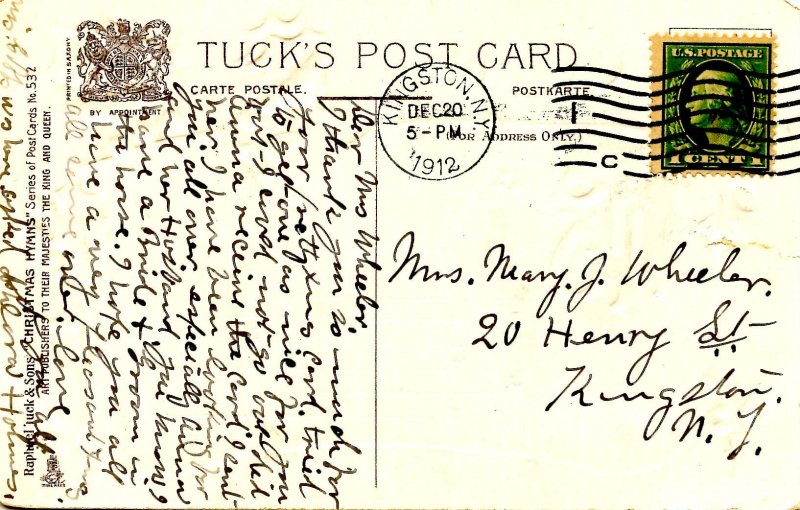 TUCK'S POST CARD
CARTE POSTALE.
POSTKARTE.
(FOR ADDRESS ONLY.)
BY APPOINTMENT
PRINTED IN SAXONY
KINGSTON, N.Y.
DEC 20
5 - PM
1912
C
U.S. POSTAGE
1 CENT 1
Mrs. Mary. J. Wheeler.
20 Henry St
Kingston.
N. Y.
Dear Mrs Wheeler,
I thank you so much for
your pretty xmas card. tried
to get one as nice for you
but I could not go out. did
Anna receive the card I sent
her. I have been looking for
you all over especially Anna
and her Husband you know I
have a Bride & Groom in
the house. I hope you all
have a very pleasant xmas
all
love
Raphael Tuck & Sons' "CHRISTMAS HYMNS" Series of Post Cards No. 532
ART PUBLISHERS TO THEIR MAJESTIES THE KING AND QUEEN.